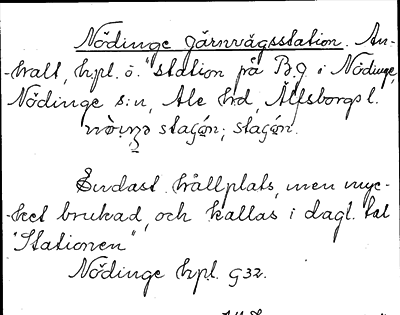 Nödinge Järnvägsstation. An-
-halt, hpl. o. "station på B.J i Nödinge,
Nödinge s:n, Ale hd, Älfsborgs l.
stagén; stagén.
Endast hållplats, men myc-
-ket brukad, och kallas i dagl. tal
"Stationen"
Nödinge hpl. G32.